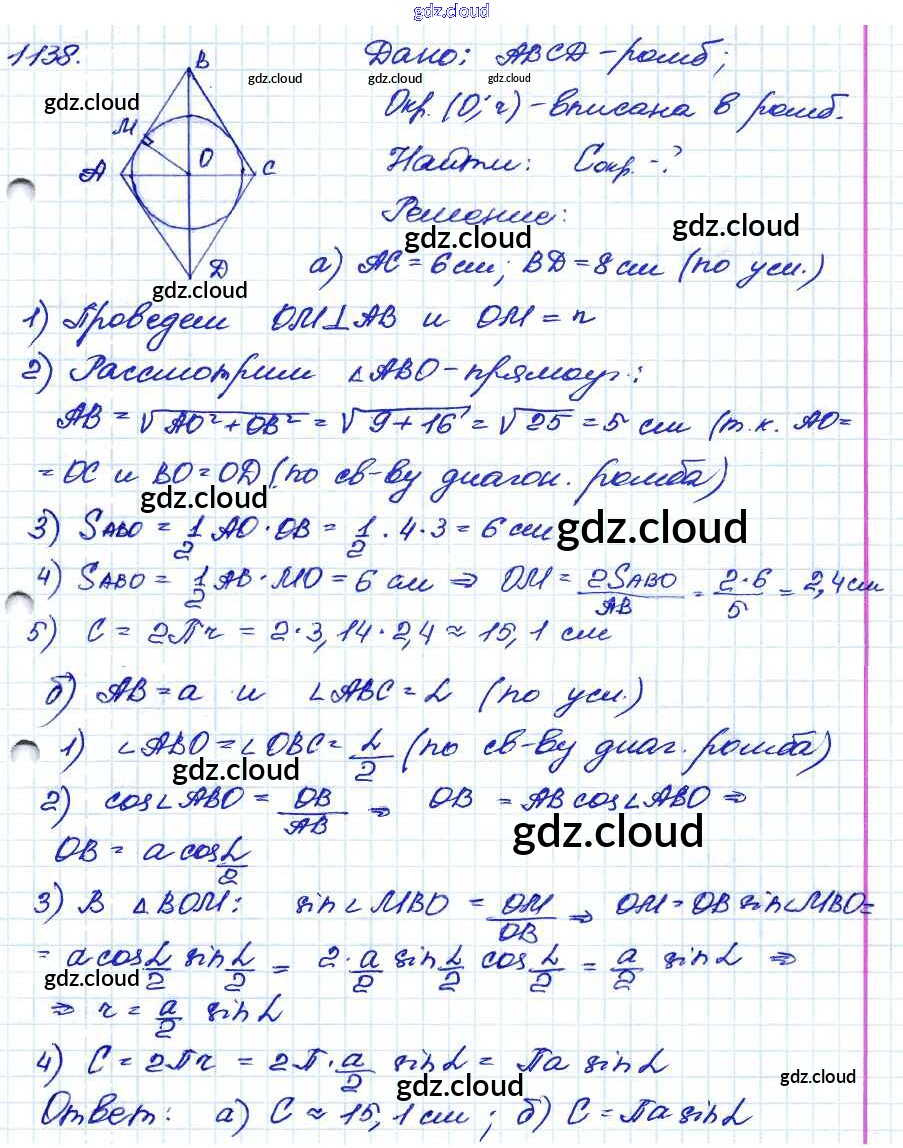 gdz.cloud
1138.
B
M
A
O
C
D
Дано: ABCD - ромб;
gdz.cloud gdz.cloud
gdz.cloud
Окр. (O; r) - вписана в ромб.
Найти: Cокр. - ?
Решение:
gdz.cloud gdz.cloud
а) AC = 6 см; BD = 8 см (по усл.)
gdz.cloud
1) Проведем OM⊥AB и OM = r
2) Рассмотрим △ABO - прямоуг.:
AB = √AO²+OB² = √9+16 = √25 = 5 см (т.к. AO=
= OC и BO = OD (по св-ву диагон. ромба)
gdz.cloud
3) SABO = 1/2 AO · OB = 1/2 · 4 · 3 = 6 см
gdz.cloud
4) SABO = 1/2 AB · MO = 6 см ⇒ OM = 2SABO/AB = 2·6/5 = 2,4 см
5) C = 2πr = 2·3,14·2,4 ≈ 15,1 см
б) AB = a и ∠ABC = α (по усл.)
1) ∠ABO = ∠OBC = α/2 (по св-ву диаг. ромба)
gdz.cloud
2) cos∠ABO = OB/AB ⇒ OB = AB cos∠ABO ⇒
gdz.cloud
OB = a cos α/2
3) В △BOM: sin∠MBO = OM/OB ⇒ OM = OB sin∠MBO =
= a cos α/2 sin α/2 = 2·a/2 sin α/2 cos α/2 = a/2 sin α ⇒
gdz.cloud
⇒ r = a/2 sin α
4) C = 2πr = 2π · a/2 sin α = πa sin α
gdz.cloud gdz.cloud
Ответ: а) C ≈ 15,1 см; б) C = πa sin α